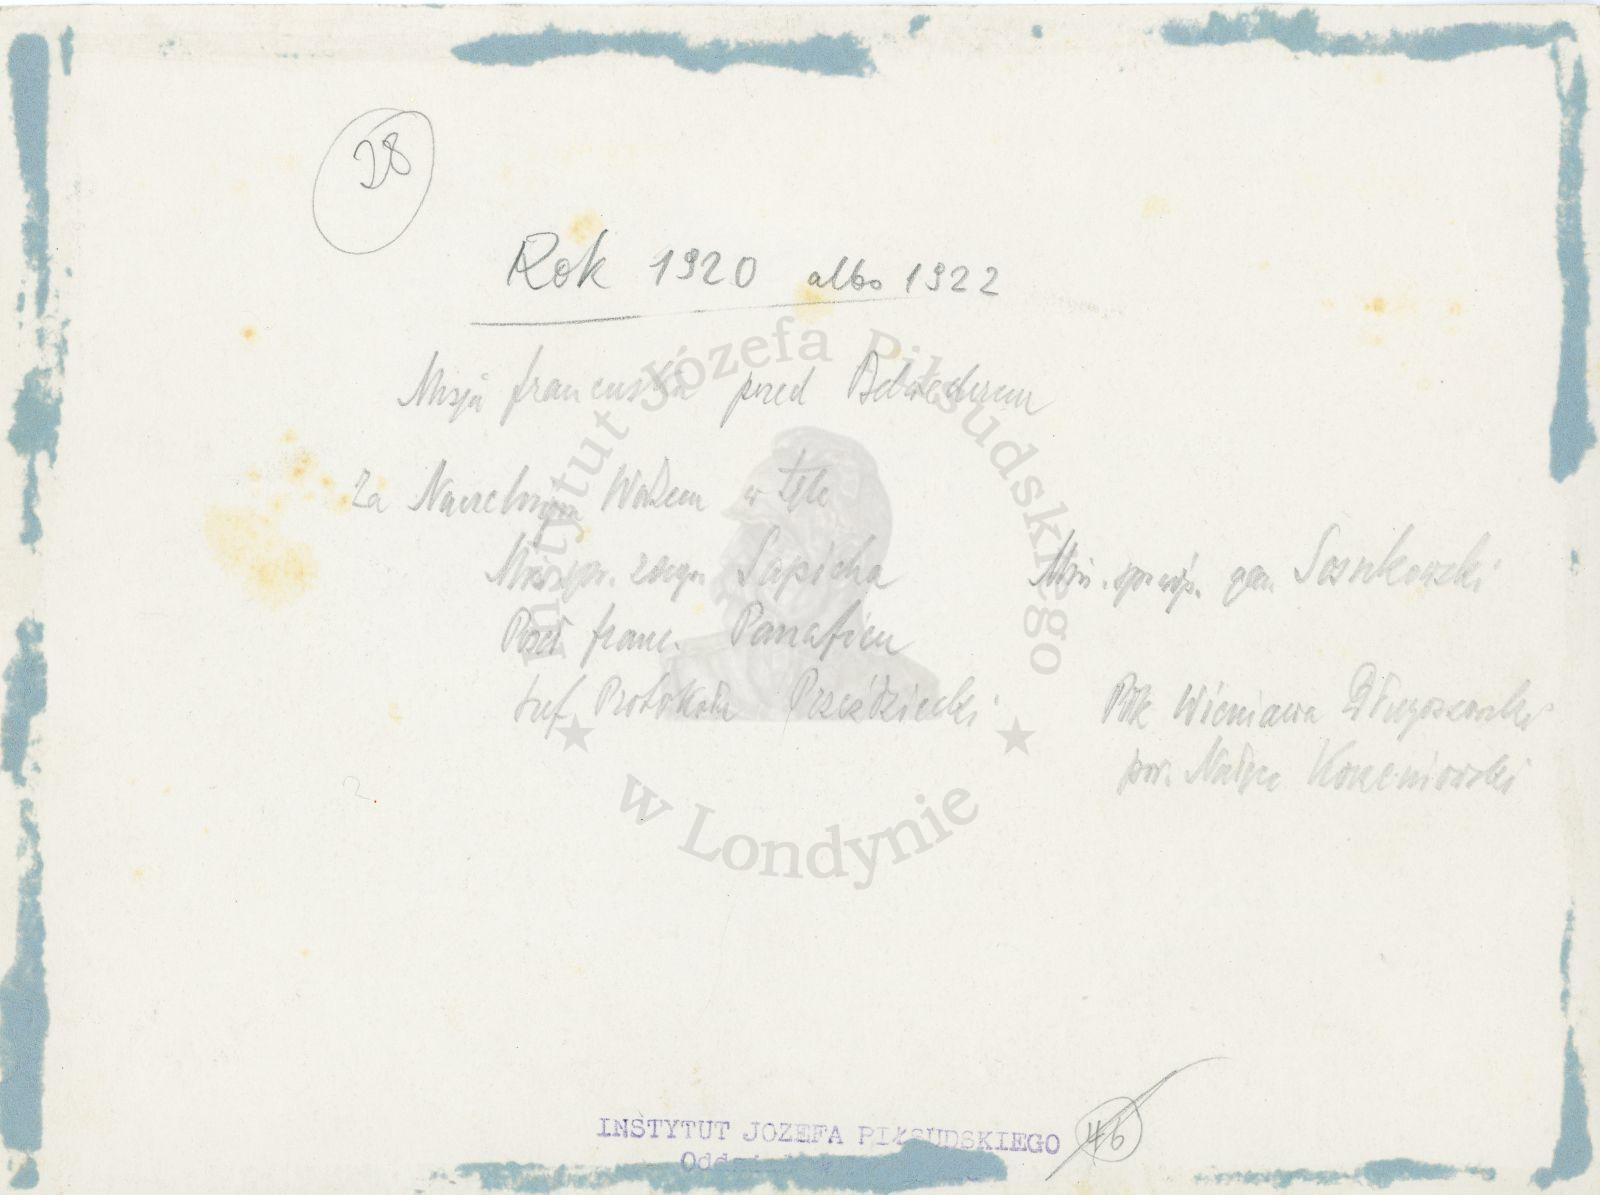 28
Rok 1920 albo 1922
Misja francuska przed Belwederem
Za Naczelnym Wodzem w tyle
Min. spr. zagr. Sapieha
Min. spr. wojs. gen. Sosnkowski
Poseł franc. Panafieu
szef Protokołu Przeździecki
Płk Wieniawa Długoszowski
por. Nałęcz Korzeniowski
Instytut Józefa Piłsudskiego
w Londynie
INSTYTUT JOZEFA PIŁSUDSKIEGO
46